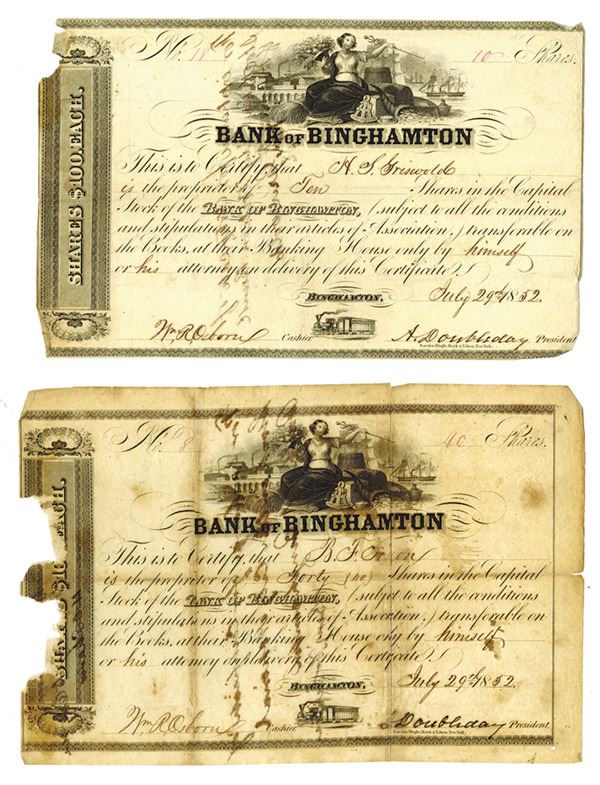 No. 10 Shares.
BANK OF BINGHAMTON
SHARES $100. EACH.
This is to Certify, that H. S. Griswold
is the proprietor of Ten Shares in the Capital
Stock of the BANK OF BINGHAMTON, (subject to all the conditions
and stipulations in their articles of Association,) transferable on
the Books, at their Banking House only by himself
or his attorney on delivery of this Certificate.
BINGHAMTON, July 29th 1852.
Wm R Osborn Cashier A. Doubleday President
No. 8 40 Shares.
BANK OF BINGHAMTON
EACH.
This is to Certify, that B. F.
is the proprietor of Forty (40) Shares in the Capital
Stock of the BANK OF BINGHAMTON, (subject to all the conditions
and stipulations in their articles of Association,) transferable on
the Books, at their Banking House only by himself
or his attorney on delivery of this Certificate.
BINGHAMTON, July 29th 1852.
Wm R Osborn Cashier A. Doubleday President